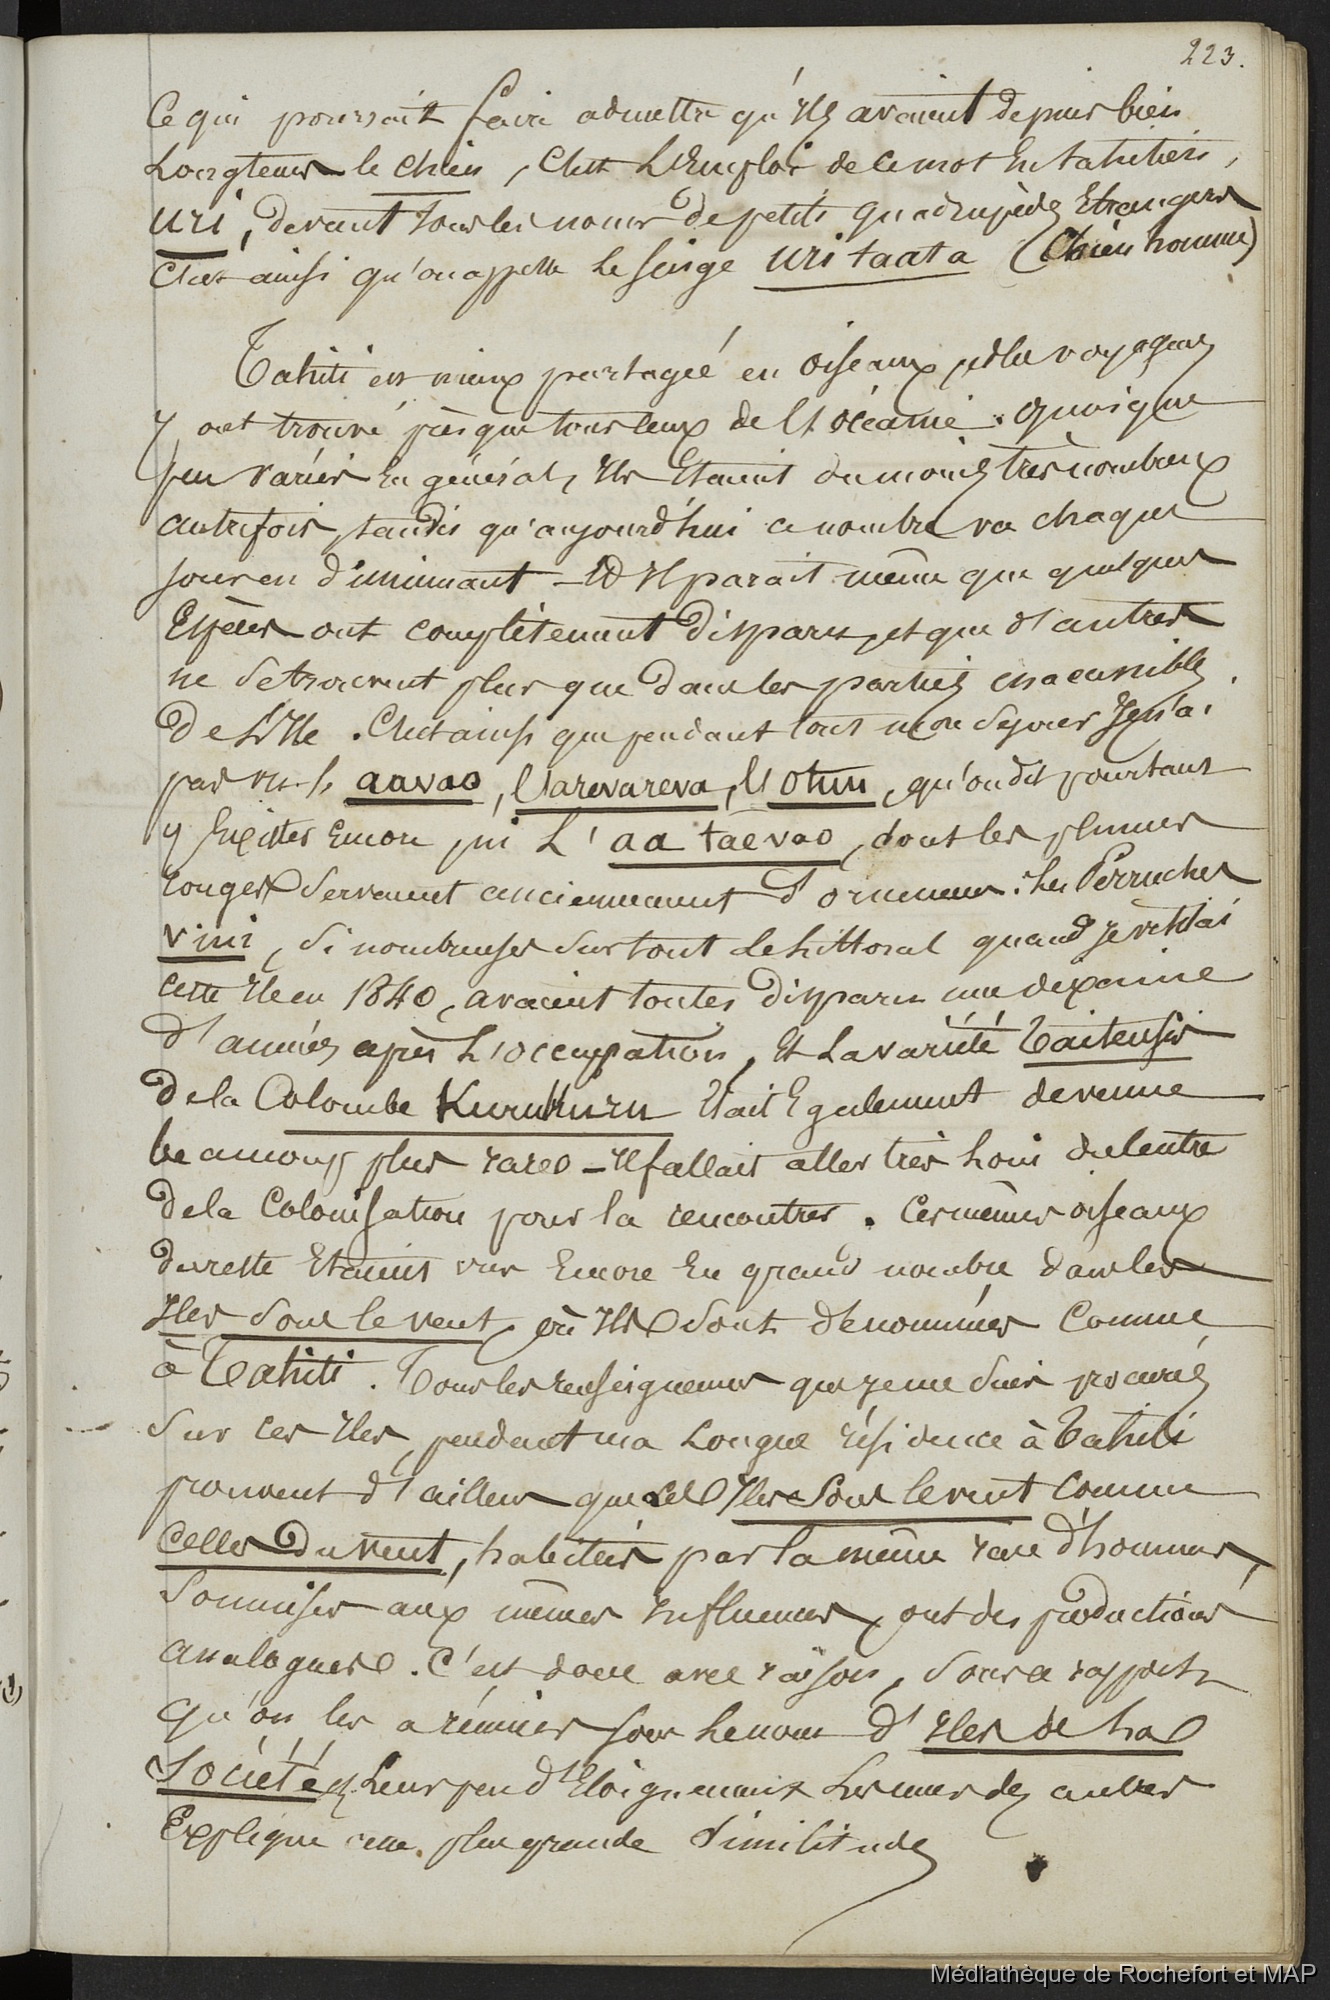 223.
Ce qui pourrait faire admettre qu'ils avaient depuis bien
Longtems le chien, C'est L'Emploi de ce mot En tahitien,
uri, devant tous les noms de petits quadrupèdes Etrangers
C'est ainsi qu'on appelle le singe uri taata (Chien homme)
Tahiti est mieux partagée en oiseaux, et les voyageurs
y ont trouvé presque tous ceux de l'océanie. Quoique
peu variés En général, Ils Etaient du moins très nombreux
autrefois, tandis qu'aujourd'hui ce nombre va chaque
jour en diminuant - Il parait même que quelques
Espèces ont complètement disparu, et que d'autres
ne se trouvent plus que dans les parties inaccessibles
De L'Ile. C'est ainsi que pendant tout mon séjour Je n'ai
pas vu le aavao, l'arevareva, l'otuu, qu'on dit pourtant
y Exister Encore, ni L'aa taevao, dont les plumes
rouges servaient anciennement d'ornemens. Les Perruches
vini, si nombreuses sur tout le littoral quand je visitai
cette Ile en 1840, avaient toutes disparu une dexaine
d'années après L'occupation, Et La variété Taitensis
de la Colombe Kurukuru Etait Egalement devenue
beaucoup plus rare - Il fallait aller très loin du Centre
de la Colonisation pour la rencontrer. Ces mêmes oiseaux
du reste Etaient vus Encore En grand nombre dans les
Iles sous le vent, où Ils sont dénommés Comme
à Tahiti. Tous les renseignemens que je me suis procurés
Sur ces Iles, pendant ma Longue résidence à Tahiti
prouvent d'ailleurs que les Iles sous le vent Comme
Celles Du vent, habitées par la même race d'hommes,
Soumises aux mêmes Influences, ont des productions
analogues. C'est donc avec raison, sous ce rapport,
qu'on les a réunies sous le nom d'Iles de La
Société, Leur peu d'Eloignement Les unes des autres
Explique cette plus grande similitude
Médiathèque de Rochefort et MAP